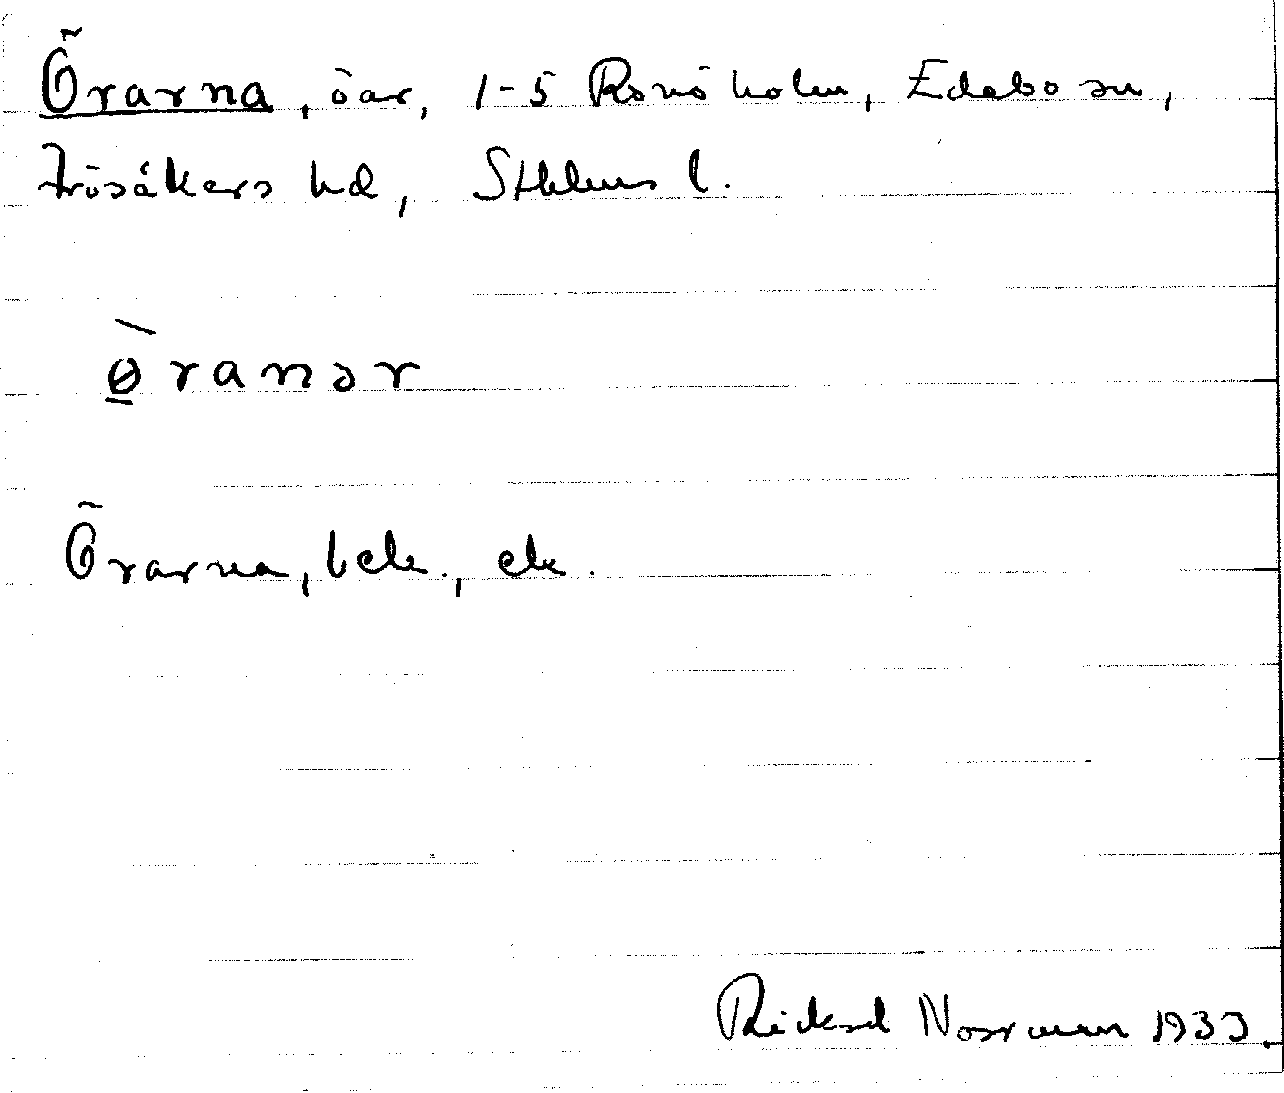 Örarna, öar, 1-5 Rönöholm, Edebo sn,
Frösåkers hd, Sthlms l.
ø̠̀ranər
Örarna, bek., ek.
Rickard Norrman 1933.